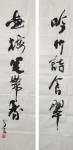 吟竹詩含翠
畫梅筆帶香